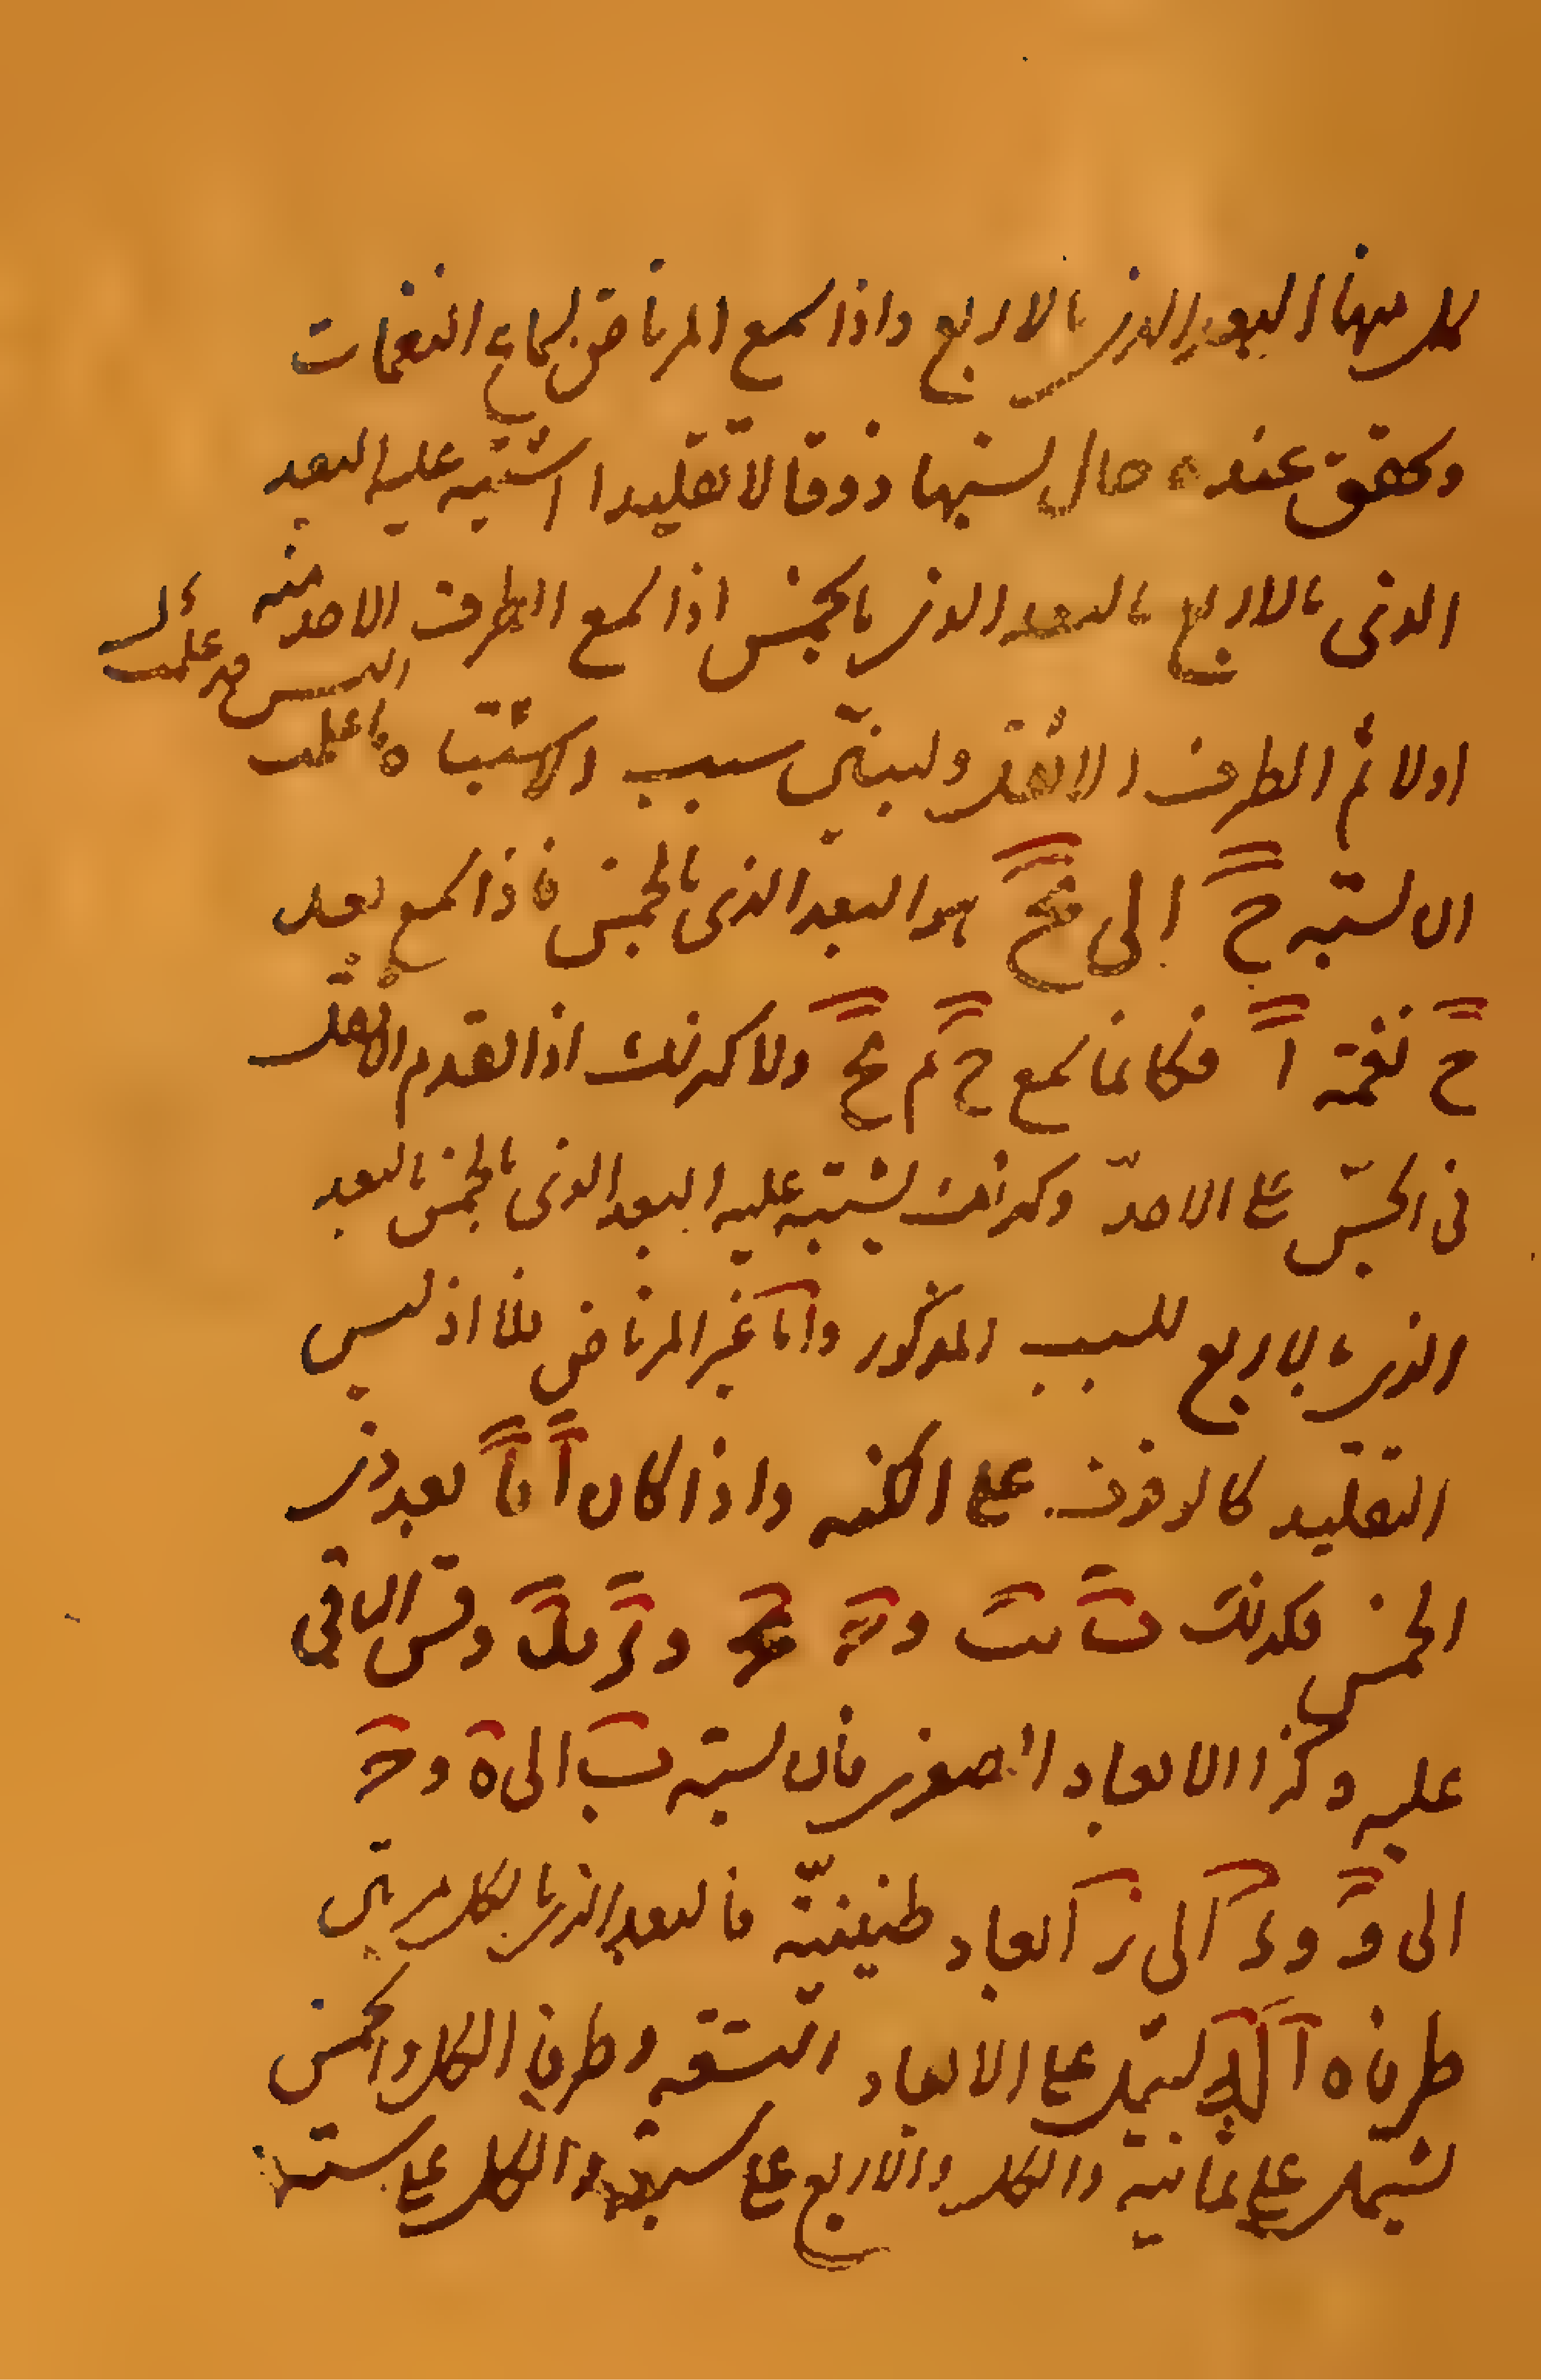 كل منها البعد الذى بالاربع واذا سمع المرتاض لسماع النغمات
وتحقق عنده حال نسبتها ذوقا لا تقليدا اشتبه عليه البعد
الذى بالاربع بالبعد الذى بالخمس اذا سمع الطرف الاحد منه
اولا ثم الطرف الاثقل ولنبين سبب الاشتباه قد علمت
ان نسبة ح الى يح هو البعد الذى بالخمس فاذا سمع بعد
ح نغمة ا فكانما سمع ح ثم يح ولا كذلك اذا تقدم الاثقل
فى الحس على الاحد وكذلك يشتبه عليه البعد الذى بالخمس بالبعد
الذى بالاربع للسبب المذكور واما غير المرتاض فلا اذ ليس
التقليد كالوقوف على الكنه واذا كان ا يا بعد ذى
الخمس فكذلك وقس الباقى
عليه وكذا الابعاد الصغرى فان نسبة ب الى ه و ح
الى و و د الى ز ابعاد طنينية فالبعد الذى بالكل مرتين
طرفاه ا له يشتمل على الابعاد التسعة وطرفا الكل والخمس
يشتمل على ثمانية والكل والاربع على سبعة والكل على ستة